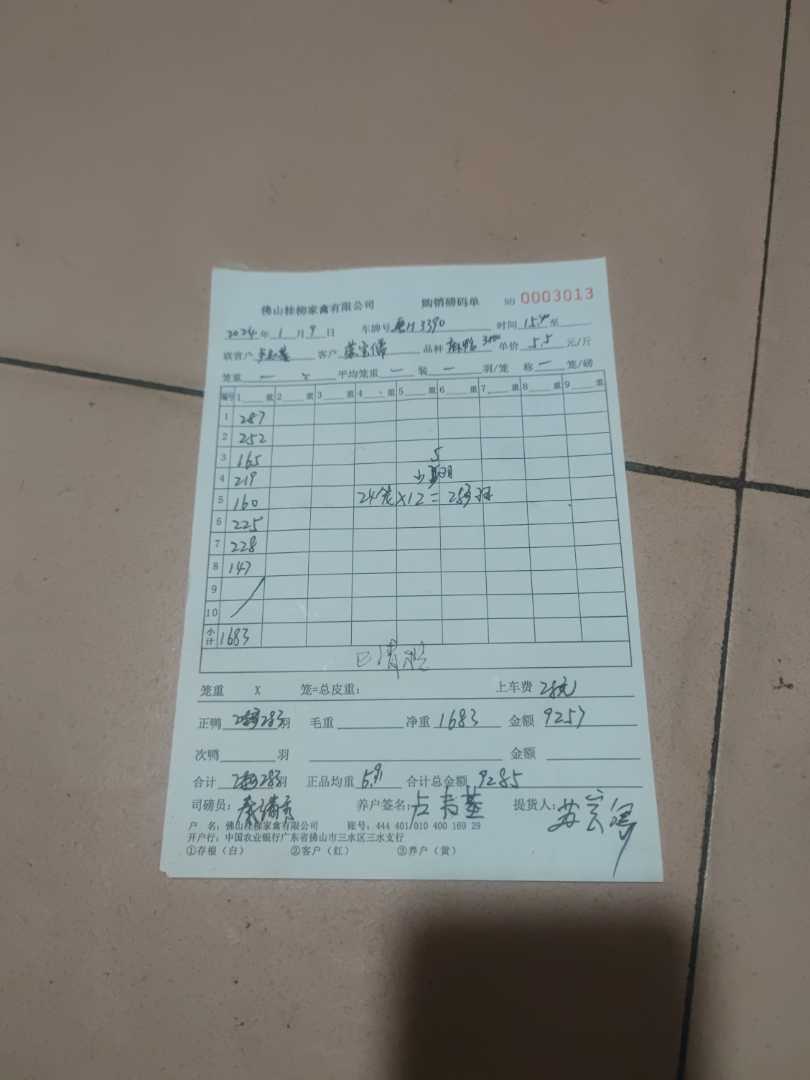 佛山桂柳家禽有限公司 购销磅码单 NO 0003013
2024年 1月 9日 车牌号 3390 时间 15 至
联营户 客户 品种 单价 5.5 元/斤
笼重 一 平均笼重 一 装 一 羽/笼 称 一 笼/磅
编号 1 重 2 重 3 重 4 重 5 重 6 重 7 重 8 重 9 重
1 287
2 252
3 165 5
4 219 少 羽
5 160 24笼×12=283羽
6 225
7 228
8 147
9
10
小计 1683
已
笼重 X 笼=总皮重: 上车费 28元
正鸭 283羽 毛重 净重 1683 金额 9257
次鸭 羽 金额
合计 283羽 正品均重 5.9 合计总金额 9285
司磅员: 养户签名: 提货人:
户 名: 佛山桂柳家禽有限公司 账号: 444 401/010 400 169 29
开户行: 中国农业银行广东省佛山市三水区三水支行
①存根(白) ②客户(红) ③养户(黄)